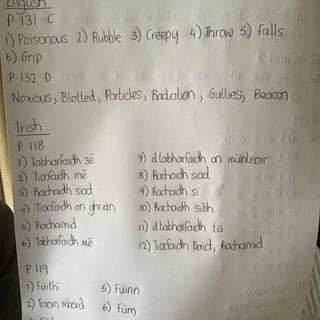 English
P 131 C
1) Poisonous 2) Rubble 3) Creepy 4) Throw 5) falls
6) Grip
P 132 D
Noxious, Blotted, Particles, Radiation, Gullies, Beacon
Irish
P 118
1) Tabharfaidh sé
2) Tiocfaidh mé
3) Rachaidh siad
4) Tiocfaidh an ghrian
5) Rachamid
6) Tabharfaidh mé
7) dtabharfaidh an múinteoir
8) Rachaidh siad
9) Rachaidh sí
10) Rachaidh sibh
11) dtabharfaidh tú
12) Tiocfaidh Daid, Rachamid
P 119
1) Fúithi
2) Faoin mbord
5) Fúinn
6) Fúm